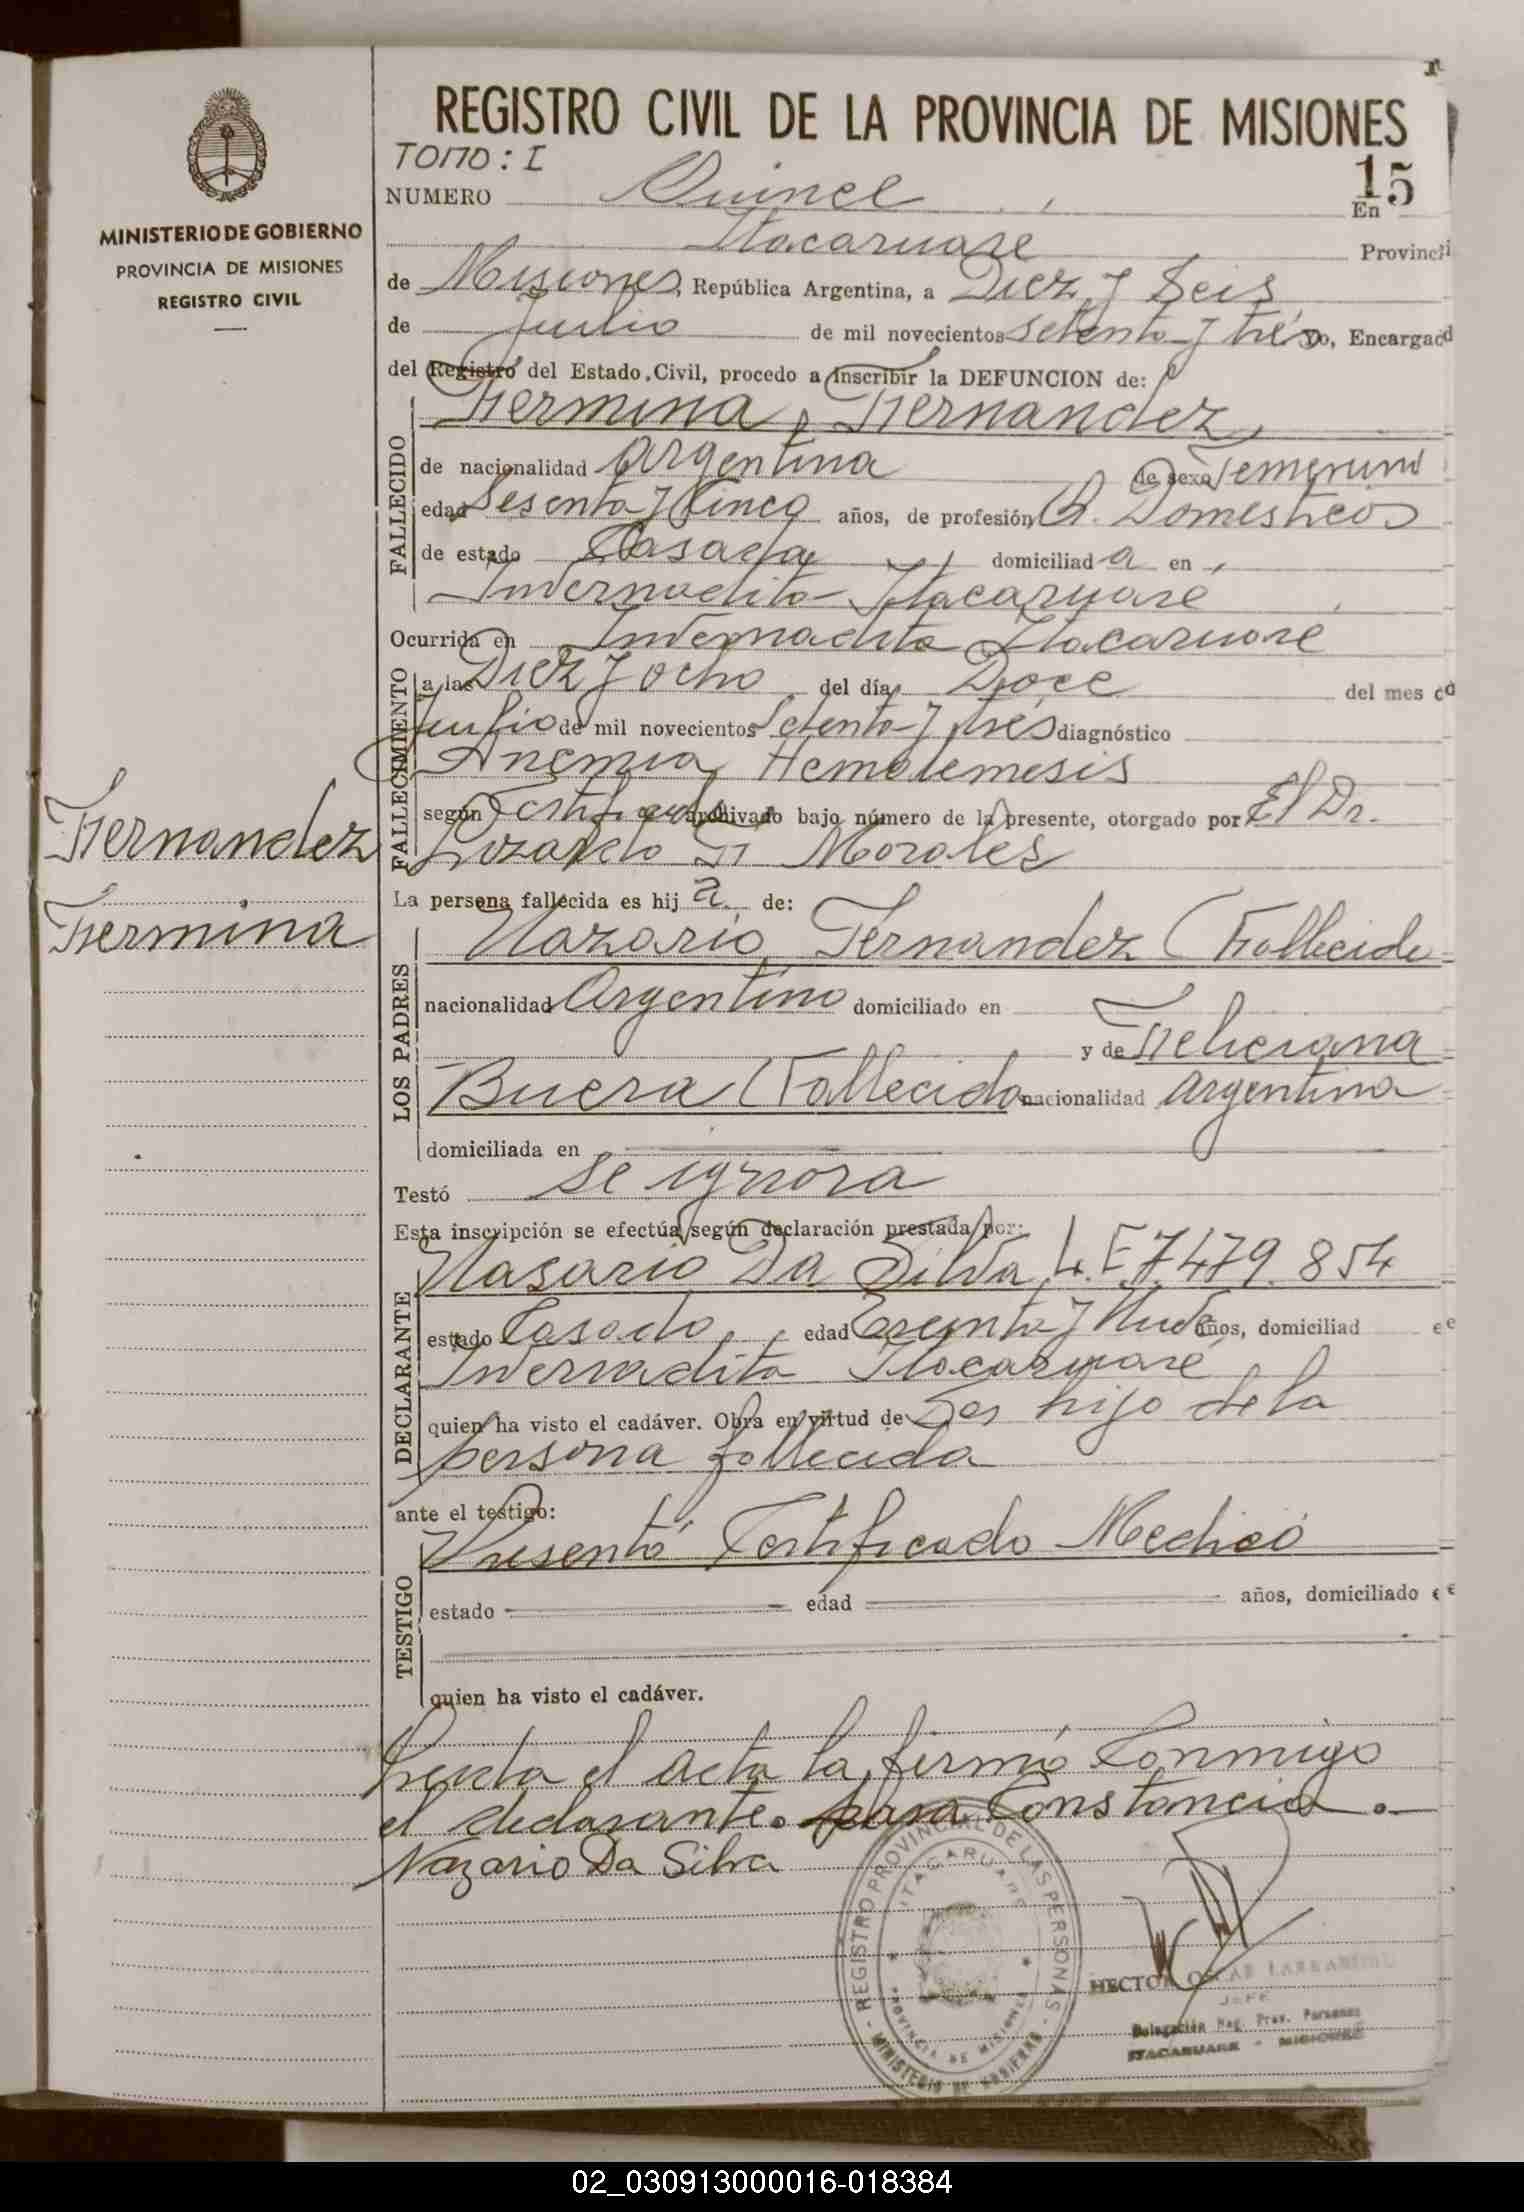 REGISTRO CIVIL DE LA PROVINCIA DE MISIONES
MINISTERIO DE GOBIERNO
PROVINCIA DE MISIONES
REGISTRO CIVIL
TOMO: I
15
NUMERO Quince En
Itacaruare Provinci
de Misiones, República Argentina, a Diez y Seis
de Julio de mil novecientos setenta y trés Yo, Encargad
del Registro del Estado Civil, procedo a inscribir la DEFUNCION de:
FALLECIDO
Fermina Fernandez
de nacionalidad argentina de sexo Femenino
edad Sesenta y Cinco años, de profesión Q. Domesticos
de estado Casada domiciliad a en
Invernadita Itacaruaré
Ocurrida en Invernadita Itacaruare
FALLECIMIENTO
a las Diez y ocho del día Doce del mes d
Julio de mil novecientos Setenta y trés diagnóstico
Anemia Hemotemesis
según Certificado archivado bajo número de la presente, otorgado por El Dr.
Morales
Fernandez
Fermina
La persona fallecida es hij a de:
LOS PADRES
Nazario Fernandez (Fallecido
nacionalidad Argentino domiciliado en
y de Feliciana
Buera (Fallecida nacionalidad argentina
domiciliada en
Testó se ignora
Esta inscripción se efectúa según declaración prestada por:
DECLARANTE
Nasario Da Silva L.E 7.479.854
estado Casado edad Treinta y Nueve años, domiciliad e
Invernadita Itacaruaré
quien ha visto el cadáver. Obra en virtud de Ser hijo de la
persona fallecida
ante el testigo:
TESTIGO
Presentó Certificado Medico
estado edad años, domiciliado e
quien ha visto el cadáver.
Leida el acta la firmó Conmigo
el declarante. para Constancia.
Nazario Da Silva
REGISTRO PROVINCIAL DE LAS PERSONAS
ITACARUARE
PROVINCIA DE MISIONES
MINISTERIO DE GOBIERNO
HECTOR
JEFE
Delegación Reg. Prov. Personas
ITACARUARE - MISIONES
02_030913000016-018384